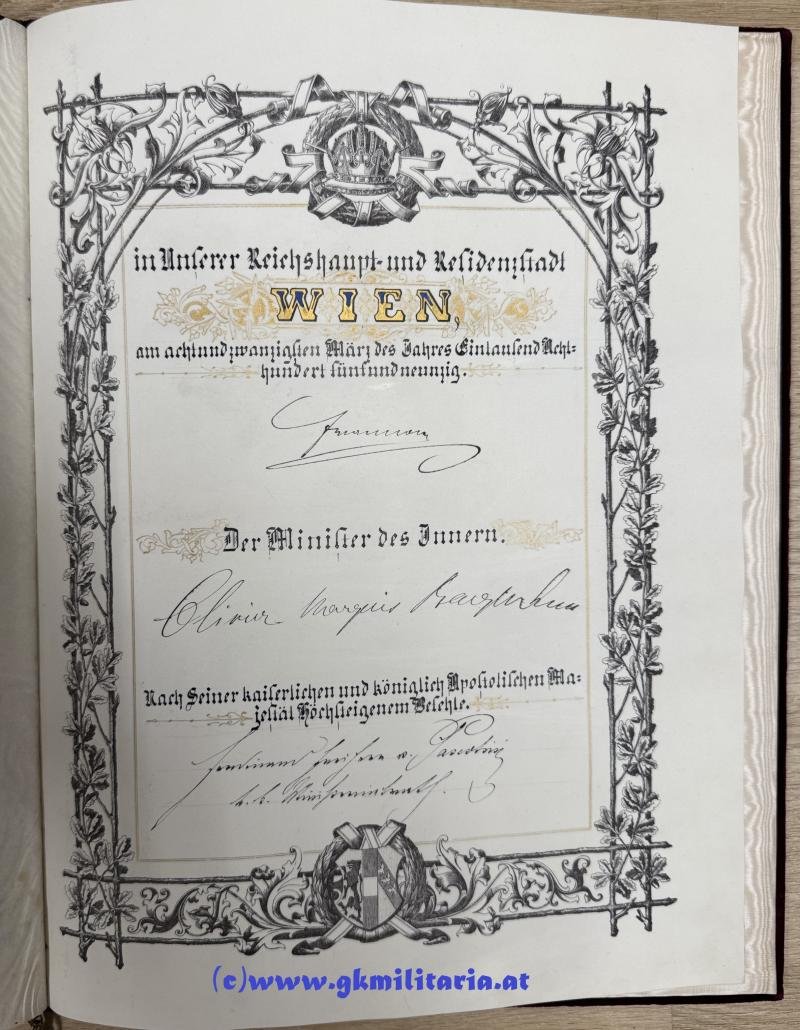 in Unserer Reichshaupt- und Residenzstadt
WIEN,
am achtundzwanzigsten März des Jahres Eintausend Acht-
hundert fünfundneunzig.
Der Minister des Innern.
Olivier Marquis Bacquehem
Nach Seiner kaiserlichen und königlich Apostolischen Ma-
jestät Höchsteigenem Befehle.
Ferdinand Freiherr v.
k. k. Ministerialrath.
(c)www.gkmilitaria.at